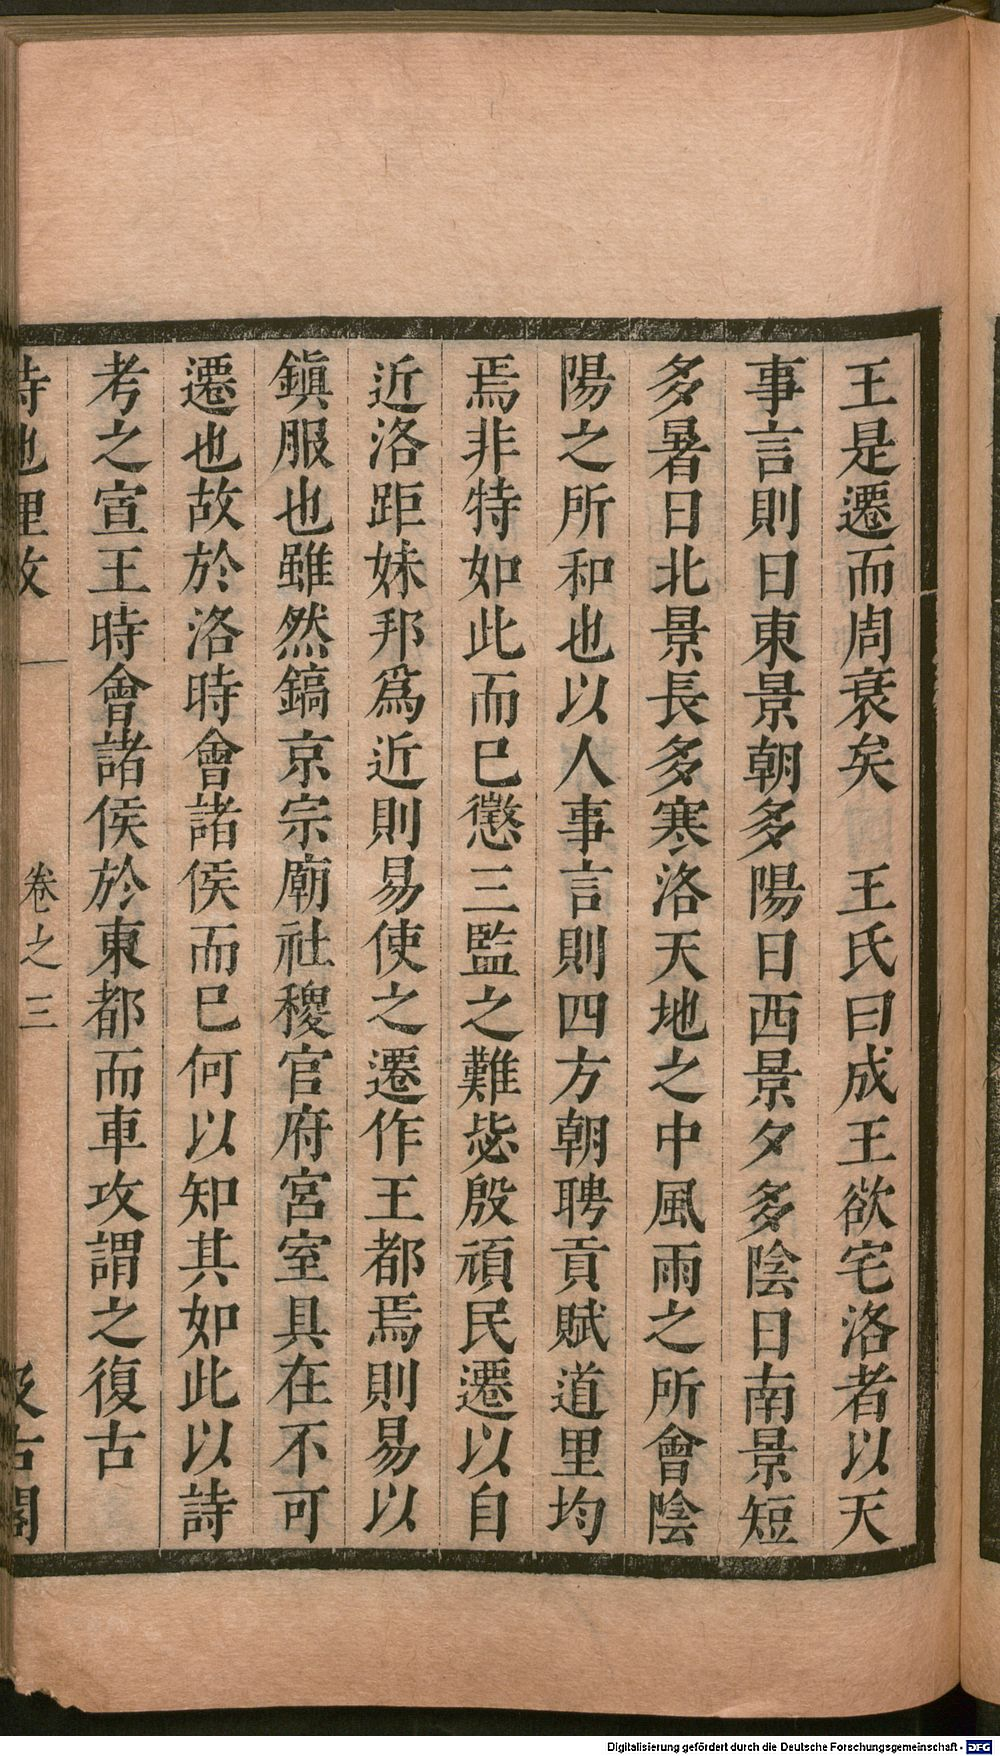 王是遷而周衰矣　王氏曰成王欲宅洛者以天
事言則日東景朝多陽日西景夕多陰日南景短
多暑日北景長多寒洛天地之中風雨之所會陰
陽之所和也以人事言則四方朝聘貢賦道里均
焉非特如此而已懲三監之難毖殷頑民遷以自
近洛距妹邦爲近則易使之遷作王都焉則易以
鎭服也雖然鎬京宗廟社稷官府宮室具在不可
遷也故於洛時會諸侯而已何以知其如此以詩
考之宣王時會諸侯於東都而車攻謂之復古
詩地理攷　卷之三　汲古閣
Digitalisierung gefördert durch die Deutsche Forschungsgemeinschaft - DFG